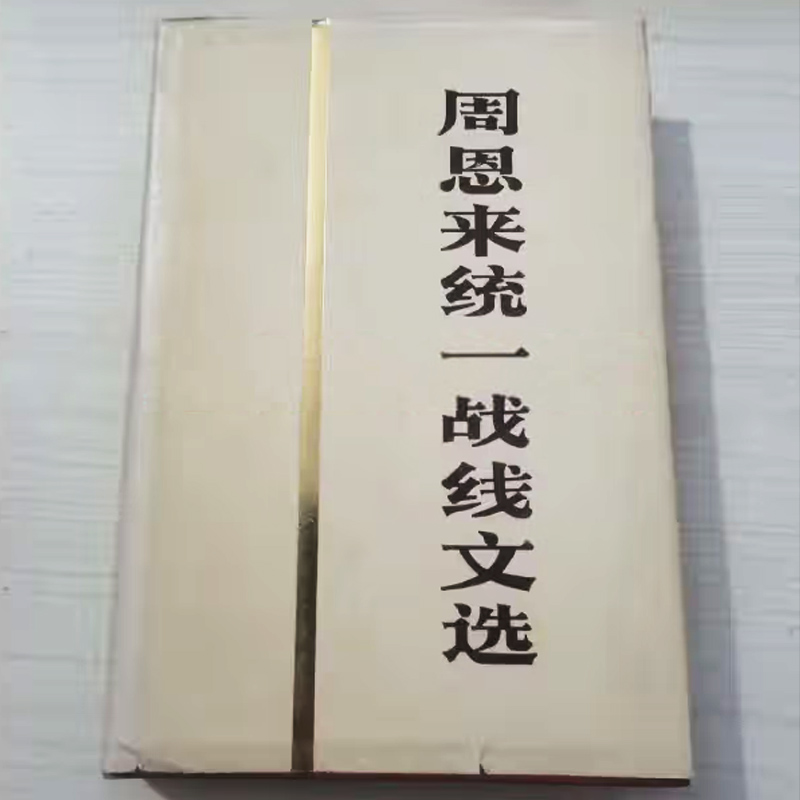 周恩来统一战线文选